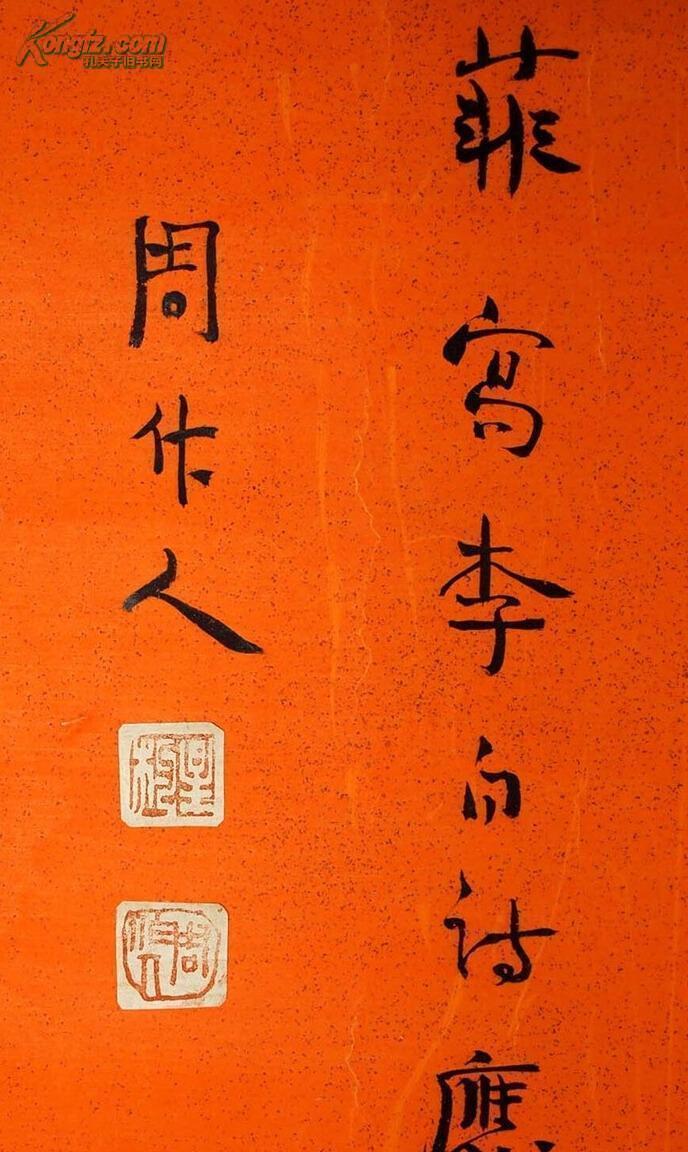 菲寫李白詩應
周作人
周作人
Kongfz.com
孔夫子旧书网